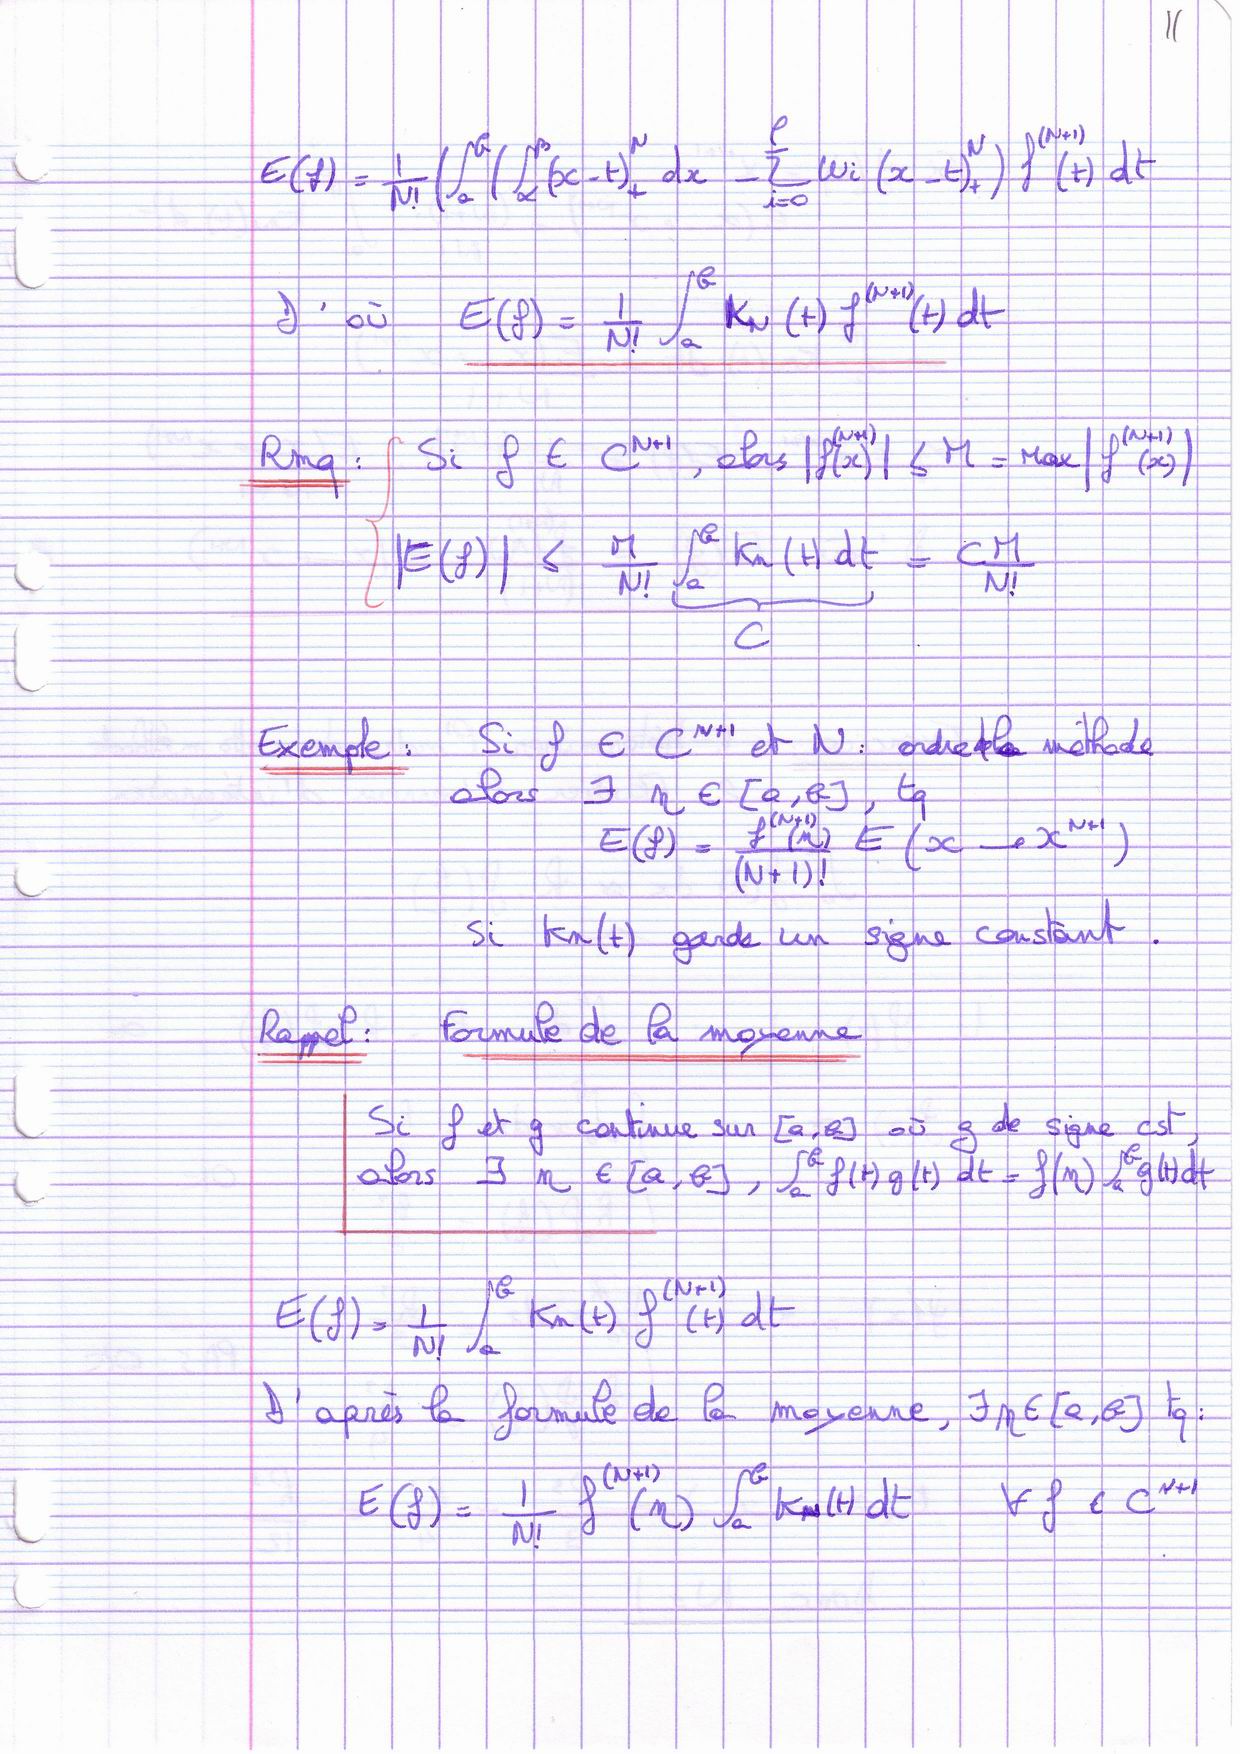 11
E(f) = 1/N! (∫_a^b (∫_α^β (x-t)_+^N dx - Σ_{i=0}^{l} wi (x-t)_+^N) f^(N+1)(t) dt
D'où E(f) = 1/N! ∫_a^b K_N (t) f^(N+1)(t) dt
Rmq : Si f ∈ C^{N+1}, alors |f^(N+1)(x)| ≤ M = Max |f^(N+1)(x)|
|E(f)| ≤ M/N! ∫_a^b Kn (t) dt = CM/N!
C
Exemple : Si f ∈ C^{N+1} et N : ordre de la méthode
alors ∃ η ∈ [a,b], tq
E(f) = f^(N+1)(η)/(N+1)! E (x → x^{N+1})
si Kn(t) garde un signe constant.
Rappel : Formule de la moyenne
Si f et g continue sur [a,b] où g de signe cst,
alors ∃ η ∈ [a,b], ∫_a^b f(t) g(t) dt = f(η) ∫_a^b g(t) dt
E(f) = 1/N! ∫_a^b Kn(t) f^(N+1)(t) dt
D'après la formule de la moyenne, ∃ η ∈ [a,b] tq :
E(f) = 1/N! f^(N+1)(η) ∫_a^b K_N(t) dt ∀ f ∈ C^{N+1}